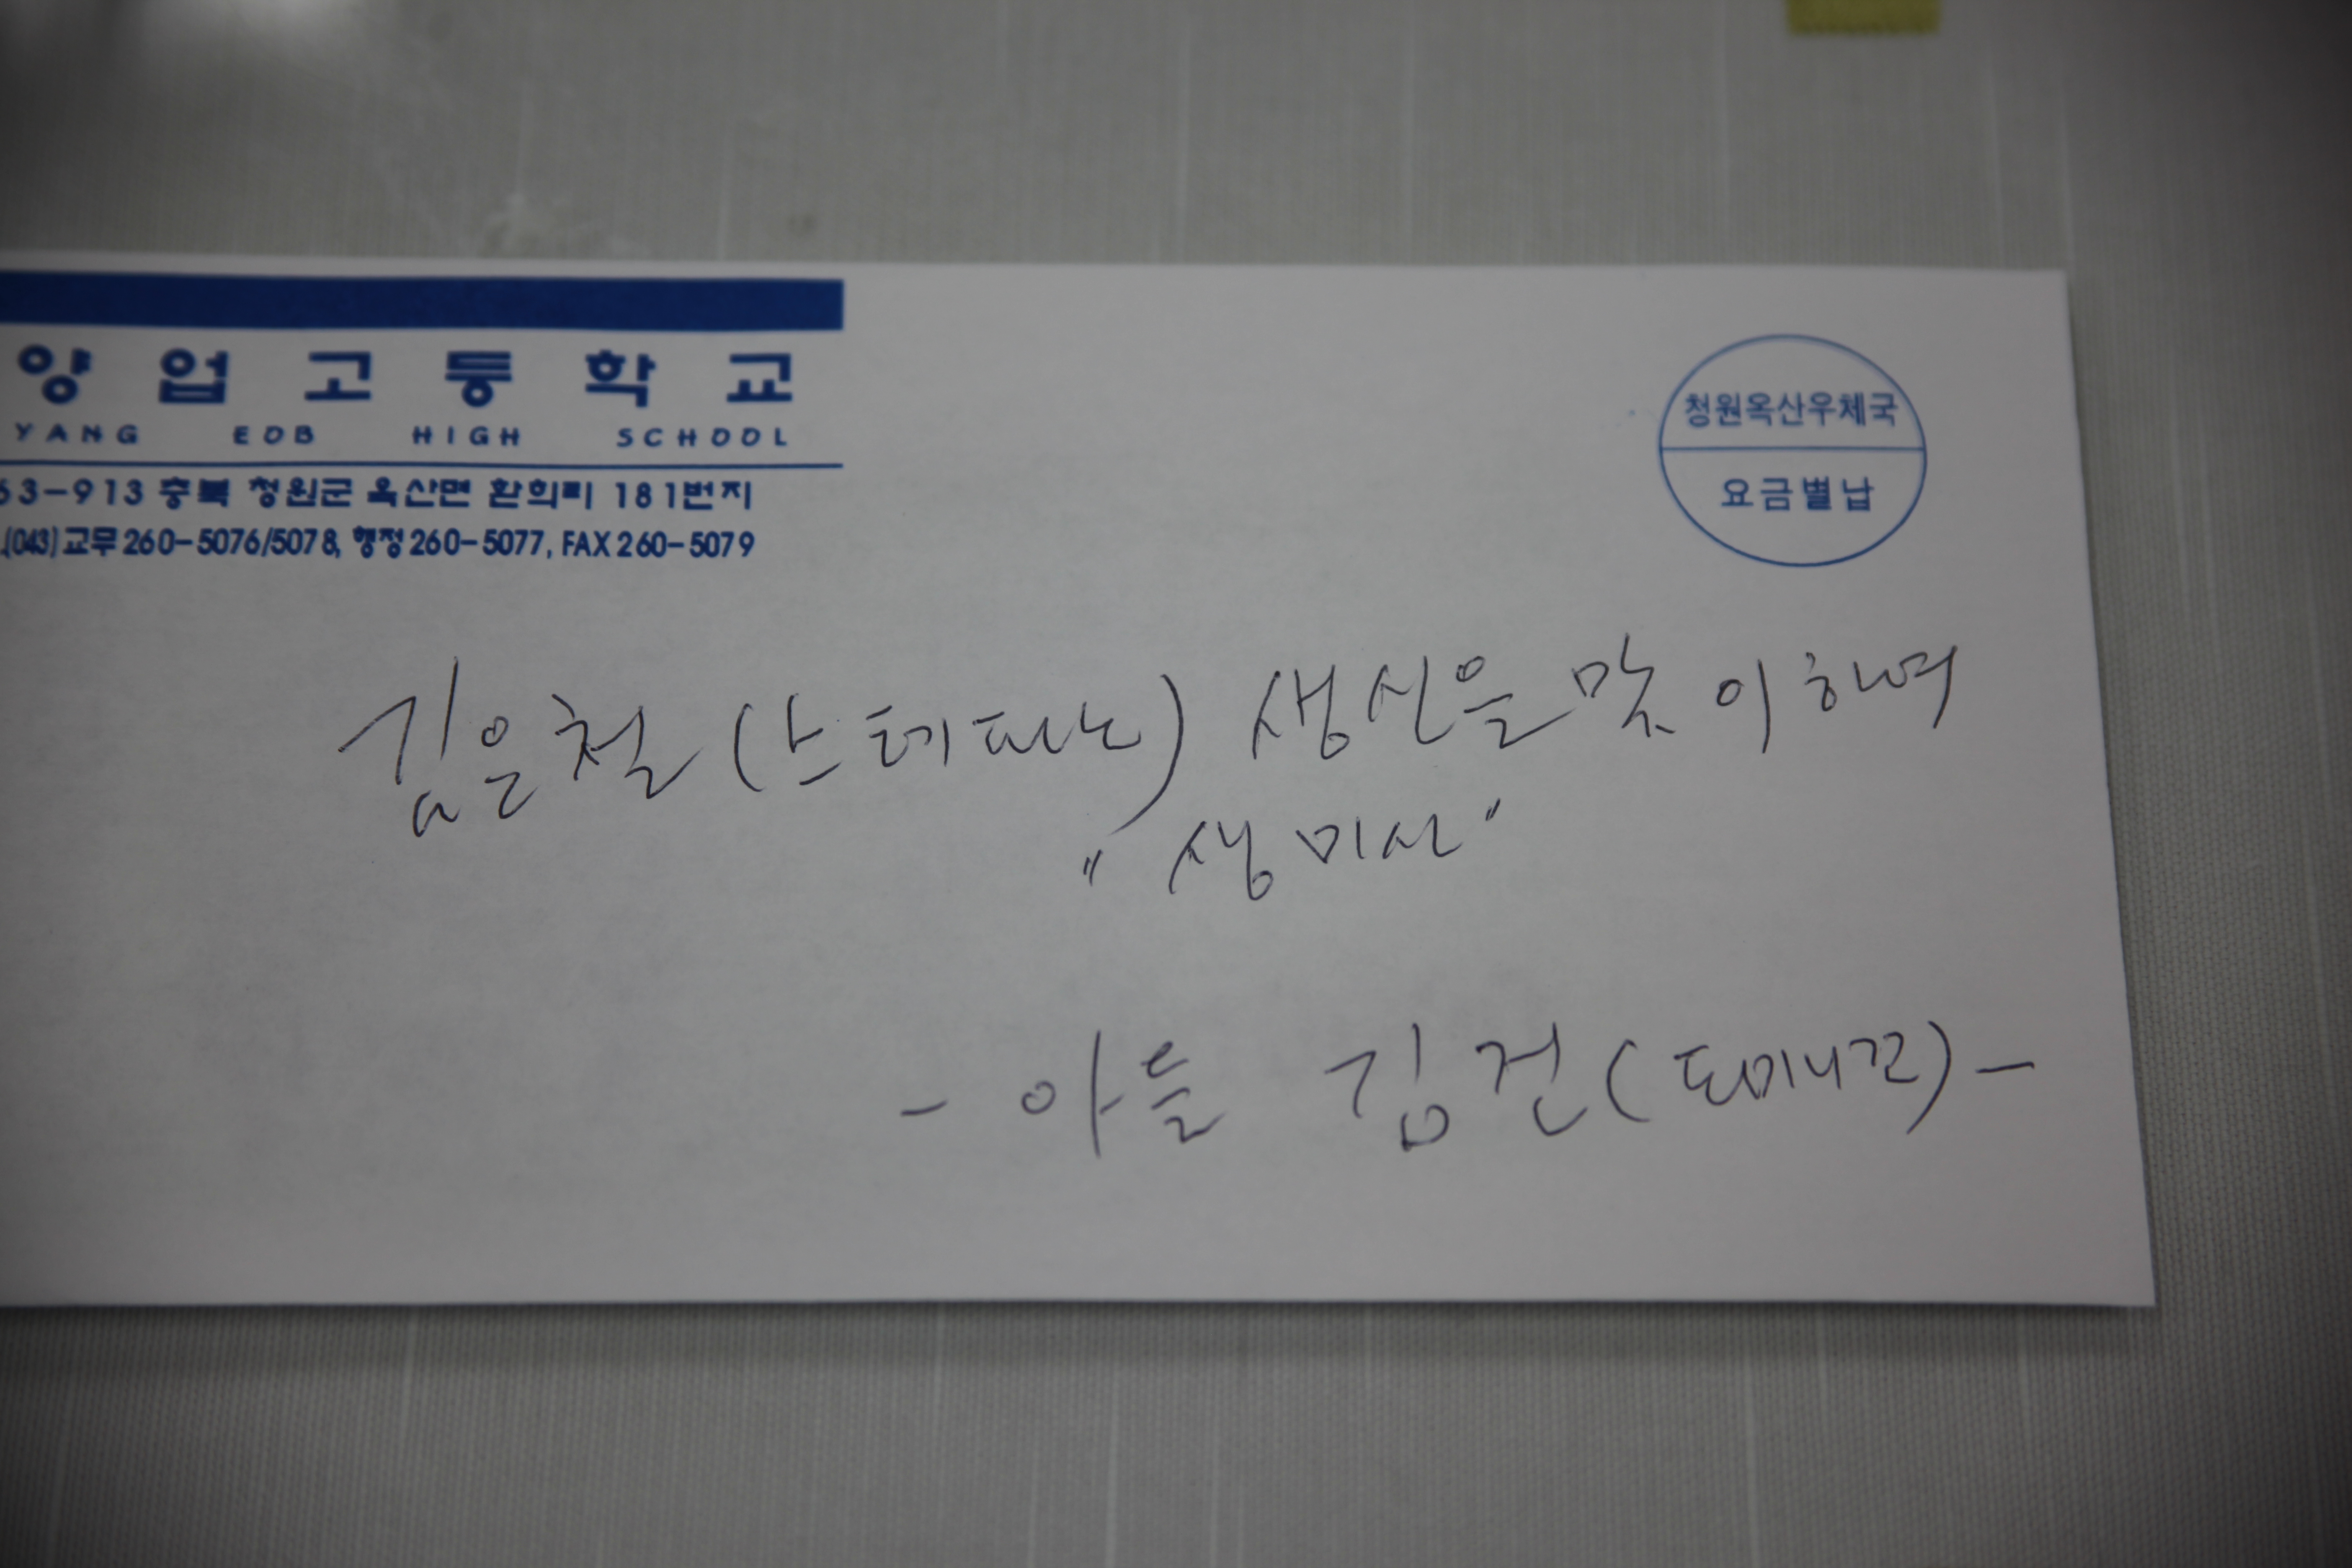 양업고등학교
YANG EOB HIGH SCHOOL
63-913 충북 청원군 옥산면 환희리 181번지
.(043)교무 260-5076/5078, 행정 260-5077, FAX 260-5079
청원옥산우체국
요금별납
김은철(스테파노) 생신을 맞이하여
"생미사"
- 아들 김건(도미니꼬) -